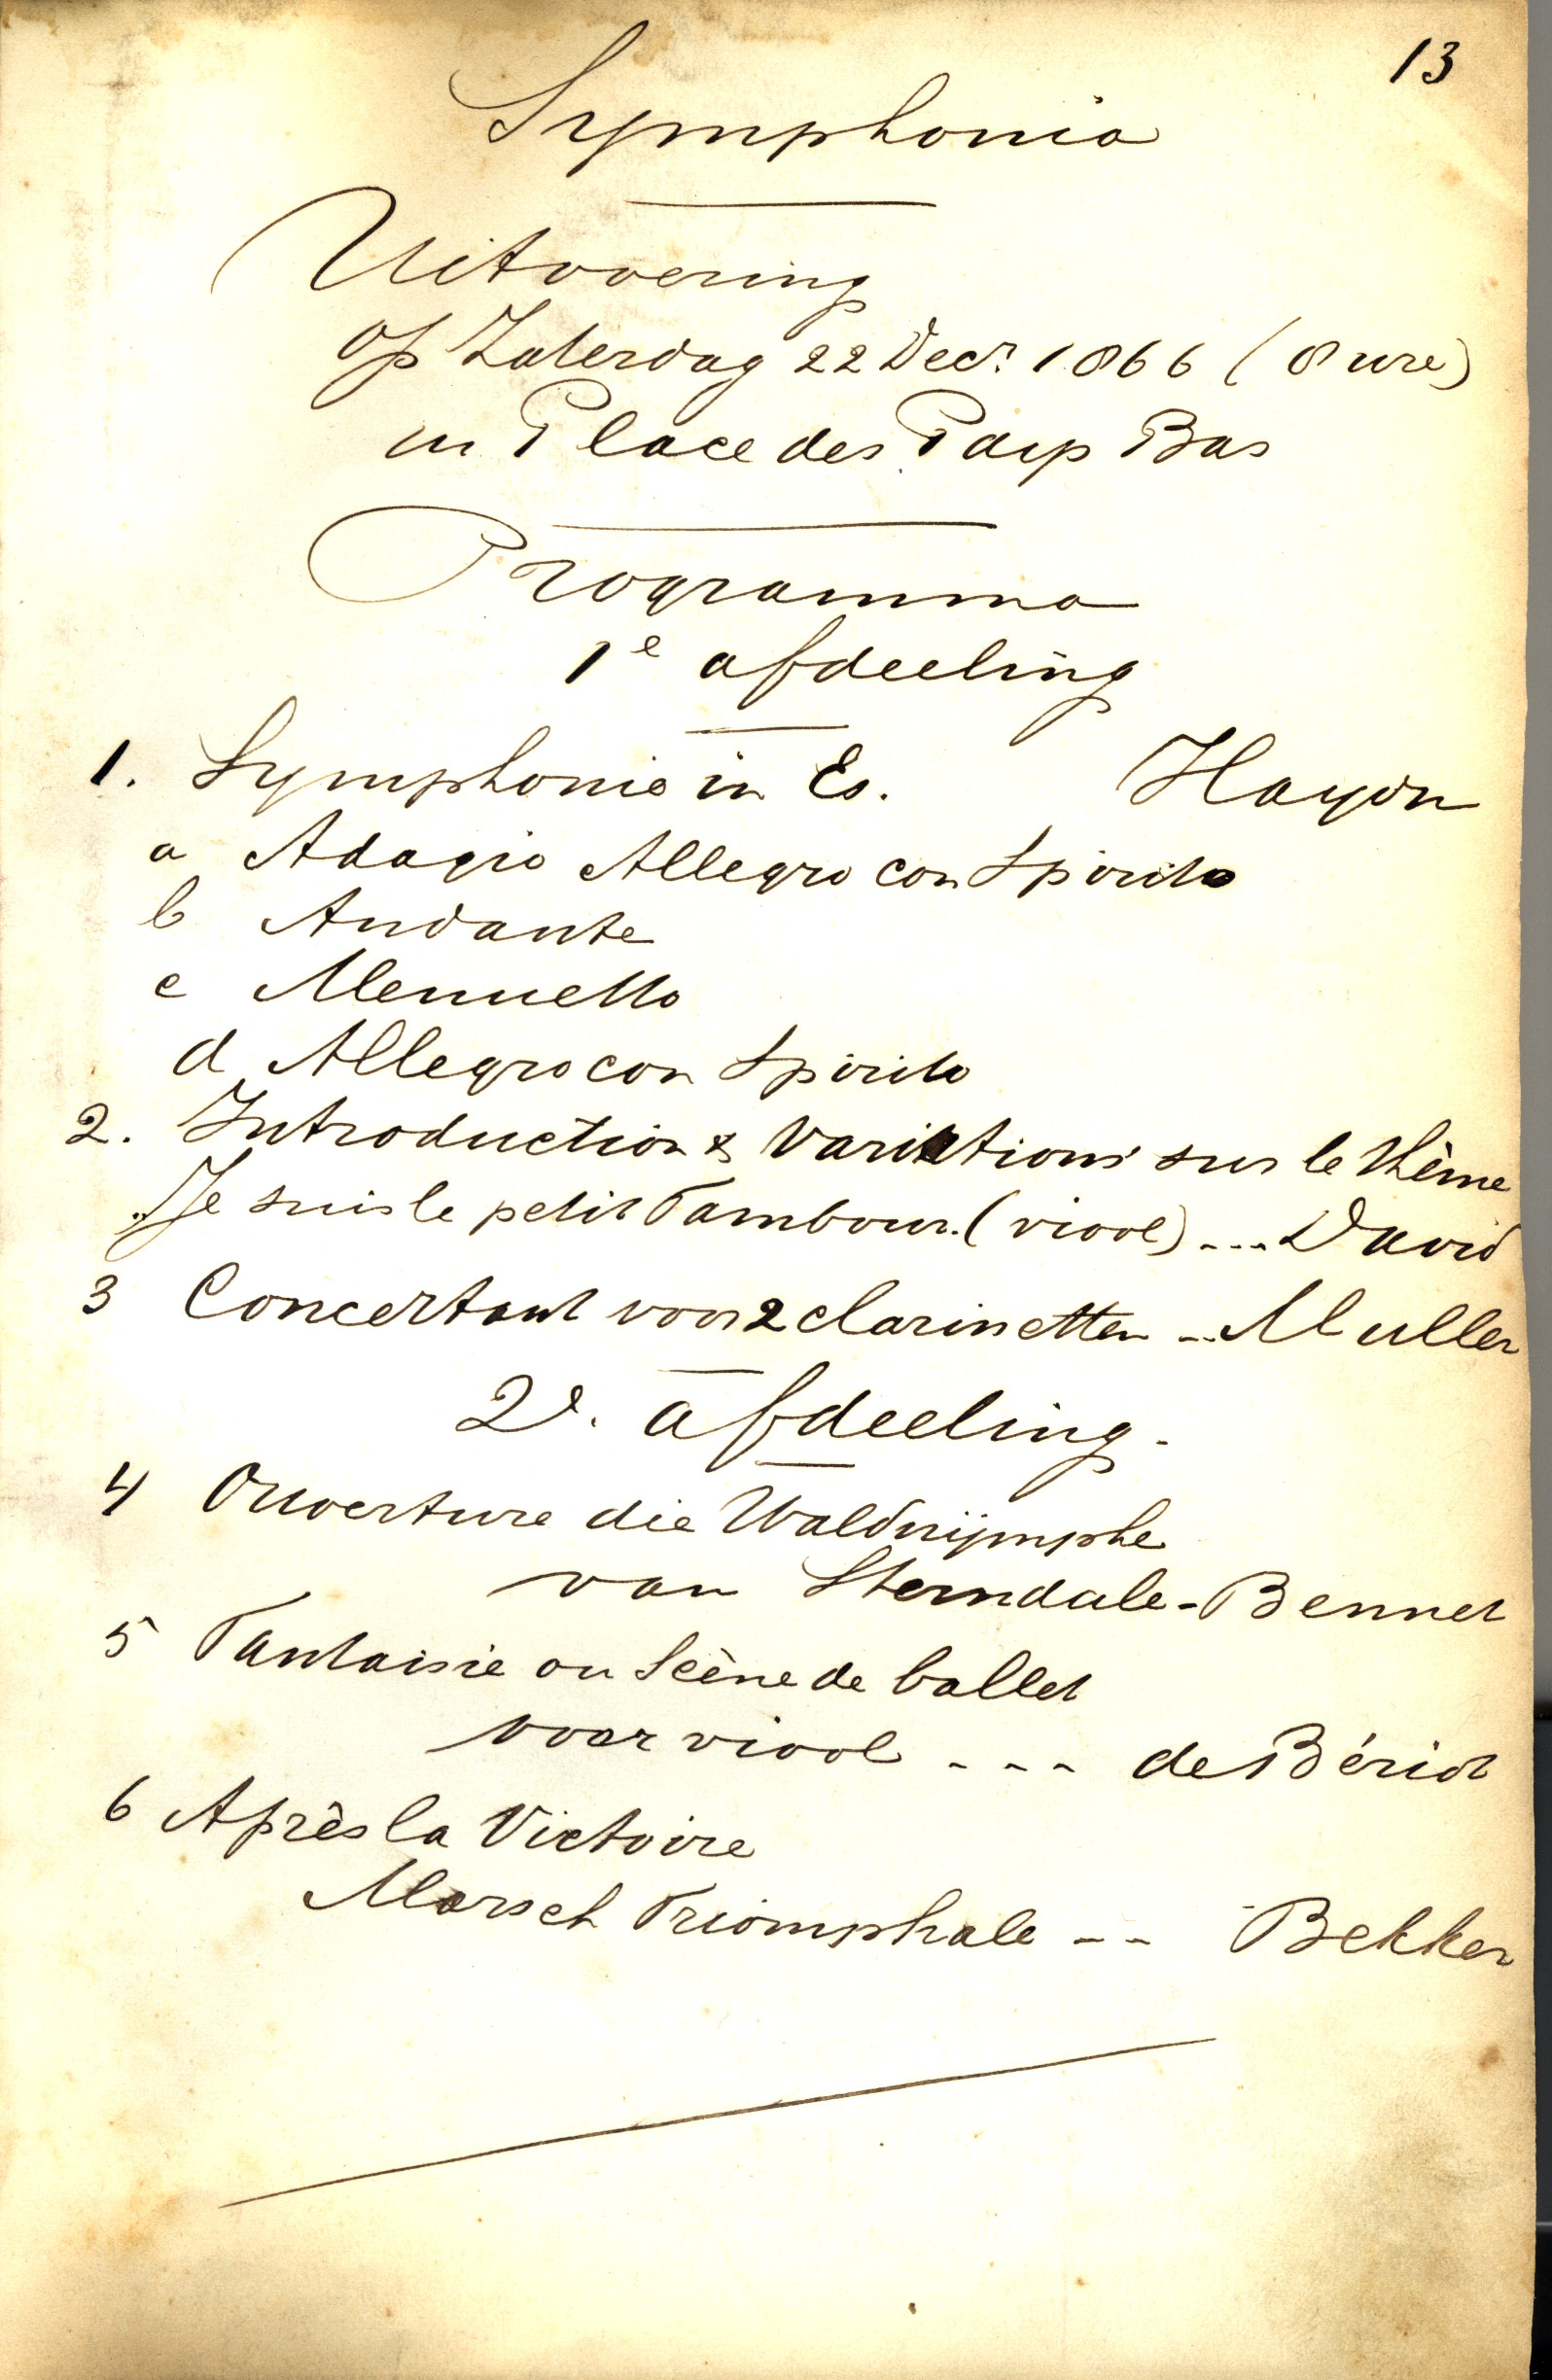 13
Symphonia
Uitvoering
op Zaterdag 22 Decr. 1866 (8 ure)
in Place des Pays Bas
Programma
1e afdeeling
1. Symphonie in Es. Haydn
a Adagio Allegro con Spirito
b Andante
c Menuetto
d Allegro con Spirito
2. Introduction & Variations sur le thème
"Je suis le petit Tambour. (viool) --- David
3 Concertant voor 2 clarinetten -- Muller
2e. afdeeling.
4 Ouverture die Waldnijmphe
van Sterndale-Bennet
5 Fantaisie ou Scène de ballet
voor viool --- de Bériot
6 Après la Victoire
Marsch Triomphale -- Bekker